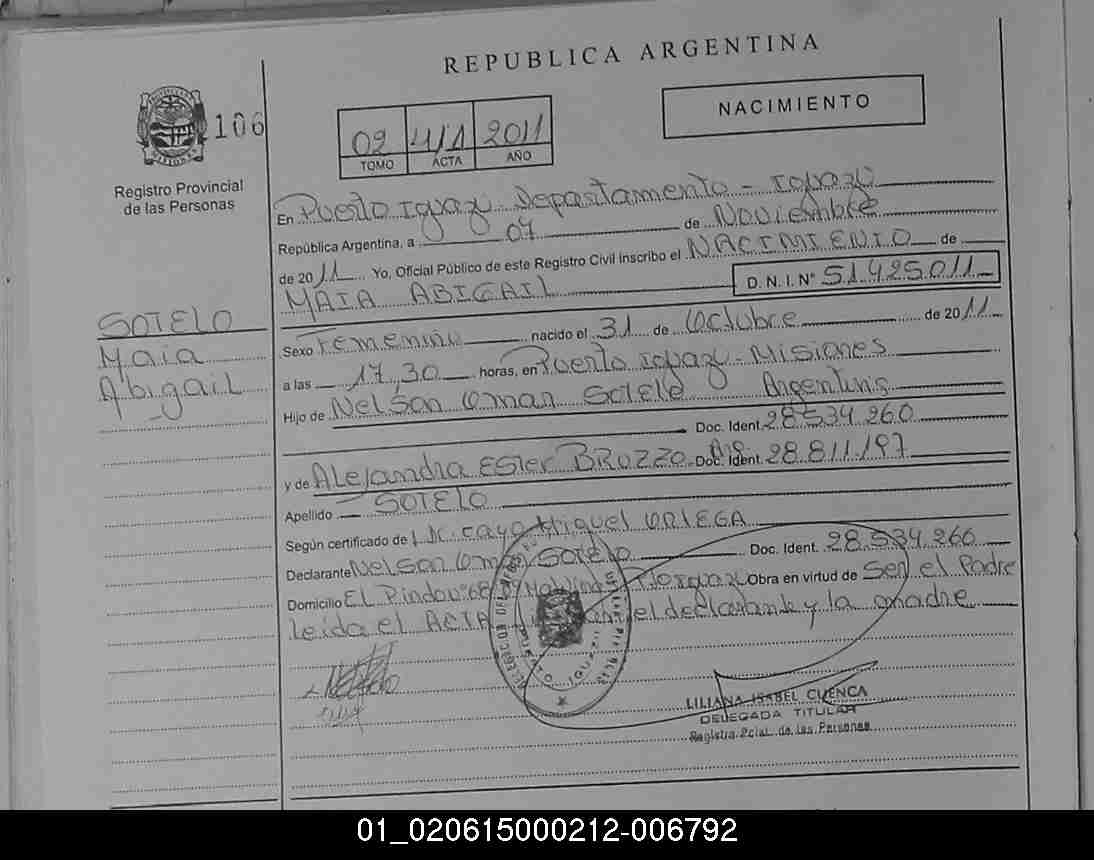 REPUBLICA ARGENTINA
NACIMIENTO
106
02 411 2011
TOMO ACTA AÑO
Registro Provincial
de las Personas
En Puerto Iguazu Departamento - Iguazu
República Argentina, a 07 de Noviembre
de 2011 Yo, Oficial Público de este Registro Civil inscribo el NACIMIENTO de
MAIA ABIGAIL D.N.I.Nº 51.425.011
SOTELO
Maia
Abigail
Sexo Femenino nacido el 31 de Octubre de 2011
a las 17,30 horas, en Puerto Iguazu - Misiones
Hijo de Nelson Omar Sotelo Argentino
Doc. Ident. 28.534.260
y de Alejandra Ester BROZZO Arg. Doc. Ident. 28.811.197
Apellido SOTELO
Según certificado de Dr. Cayo Miguel ORTEGA
Declarante Nelson Omar Sotelo Doc. Ident. 28.534.260
Domicilio El Pindo Nº 68 Pto Iguazu Obra en virtud de Ser el Padre
leida el ACTA el declarante y la madre
LILIANA ISABEL CUENCA
DELEGADA TITULAR
Registro Pcial. de las Personas
01_020615000212-006792